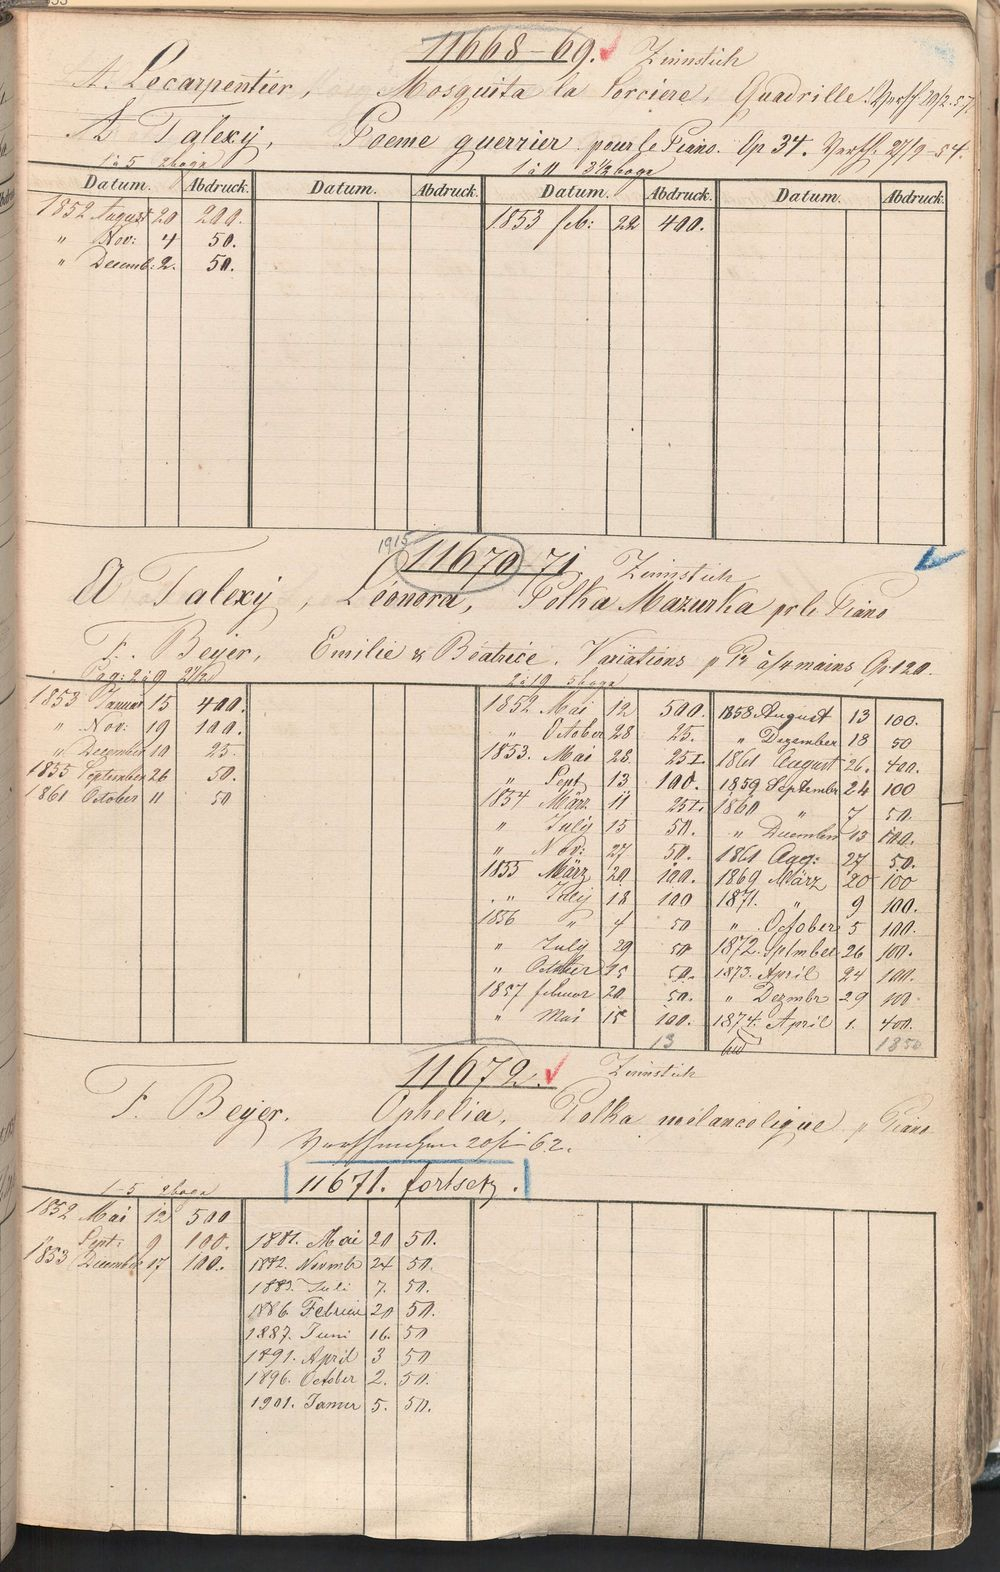 11668-69. Zinnstich
A. Lecarpentier, Mosquita la Sorciere, Quadrille.
A Talexÿ, Poeme guerrier pour le Piano. Op 34. 27/9-54.
1 à 5 2 boga 1 à 11 3 1/2 boga
Datum. Abdruck. Datum. Abdruck. Datum. Abdruck. Datum. Abdruck.
1852 August 20 200. 1853 feb: 22 400.
" Nov: 4 50.
" Decemb: 2. 50.
1915 11670-71 Zinnstich
A Talexÿ, Léonora, Polka Mazurka pr le Piano
F. Beyer, Emilie & Béatrice. Variations p P. à/4 mains Op 120.
Pag: 2 à 9 2 à 19 5 boga
1853 Januar 15 400. 1852 Mai 12 500. 1858 August 13 100.
" Nov: 19 100. " October 28 25. " Dezember 18 50
" December 10 25. 1853. Mai 28. 25 1861 August 26. 400.
1855 September 26 50. " Sept 13 100. 1859 Septembr 24 100
1861 October 11 50 1854 März 11 25 1860 " 7 50.
" July 15 50. " December 13 100.
" Nov: 27 50. 1861 Aug: 27 50.
1855 März 20 100. 1869 März 20 100
" July 18 100 1871. " 9 100.
1856 " 4 50 " October 5 100.
" July 29 50 1872. Septmber 26 100.
" October 25 50. 1873. April 24 100.
1857 februar 20 50. " Dezmbr 29 100
" Mai 15 100. 1874. April 1. 400.
13 1850
11672. Zinnstich
F. Beyer. Ophelia, Polka mélancolique p Piano
62.
11671. fortsetz.
1-5 2 boga
1852 Mai 12 500
" Sept: 9 100. 1881. Mai 20 50.
1853 December 17 100. 1882. Novmbr 24 50.
1883. Juli 7. 50.
1886. Februar 20 50.
1887. Juni 16. 50
1891. April 3 50
1896. October 2. 50.
1901. Januar 5. 50.